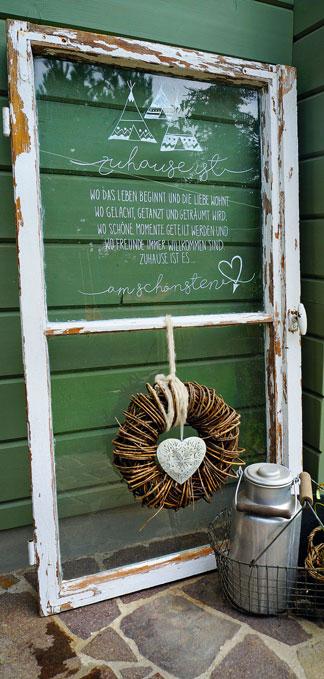 zuhause ist
WO DAS LEBEN BEGINNT UND DIE LIEBE WOHNT
WO GELACHT, GETANZT UND GETRÄUMT WIRD,
WO SCHÖNE MOMENTE GETEILT WERDEN UND
WO FREUNDE IMMER WILLKOMMEN SIND.
ZUHAUSE IST ES...
am schönsten